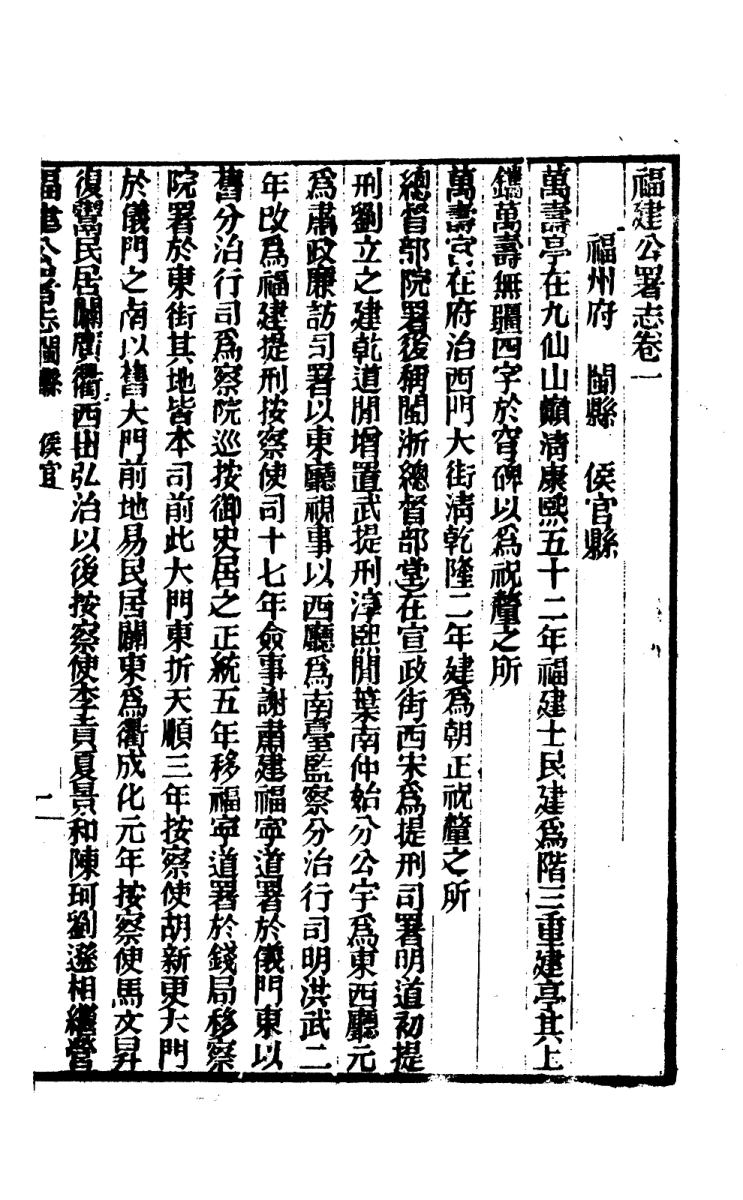 福建公署志卷一
福州府　閩縣　侯官縣
萬壽亭在九仙山巔淸康熙五十二年福建士民建爲階三重建亭其上
鐫萬壽無疆四字於穹碑以爲祝釐之所
萬壽宮在府治西門大街淸乾隆二年建爲朝正祝釐之所
總督部院署後稱閩浙總督部堂在宣政街西宋爲提刑司署明道初提
刑劉立之建乾道閒增置武提刑淳熙閒葉南仲始分公宇爲東西廳元
爲肅政廉訪司署以東廳視事以西廳爲南臺監察分治行司明洪武二
年改爲福建提刑按察使司十七年僉事謝肅建福寧道署於儀門東以
舊分治行司爲察院巡按御史居之正統五年移福寧道署於錢局移察
院署於東街其地皆本司前此大門東折天順三年按察使胡新更大門
於儀門之南以舊大門前地易民居闢東爲衢成化元年按察使馬文昇
復鬻民居闢廣衢西出弘治以後按察使李貢夏景和陳珂劉遜相繼營
福建公署志閩縣　侯官　一